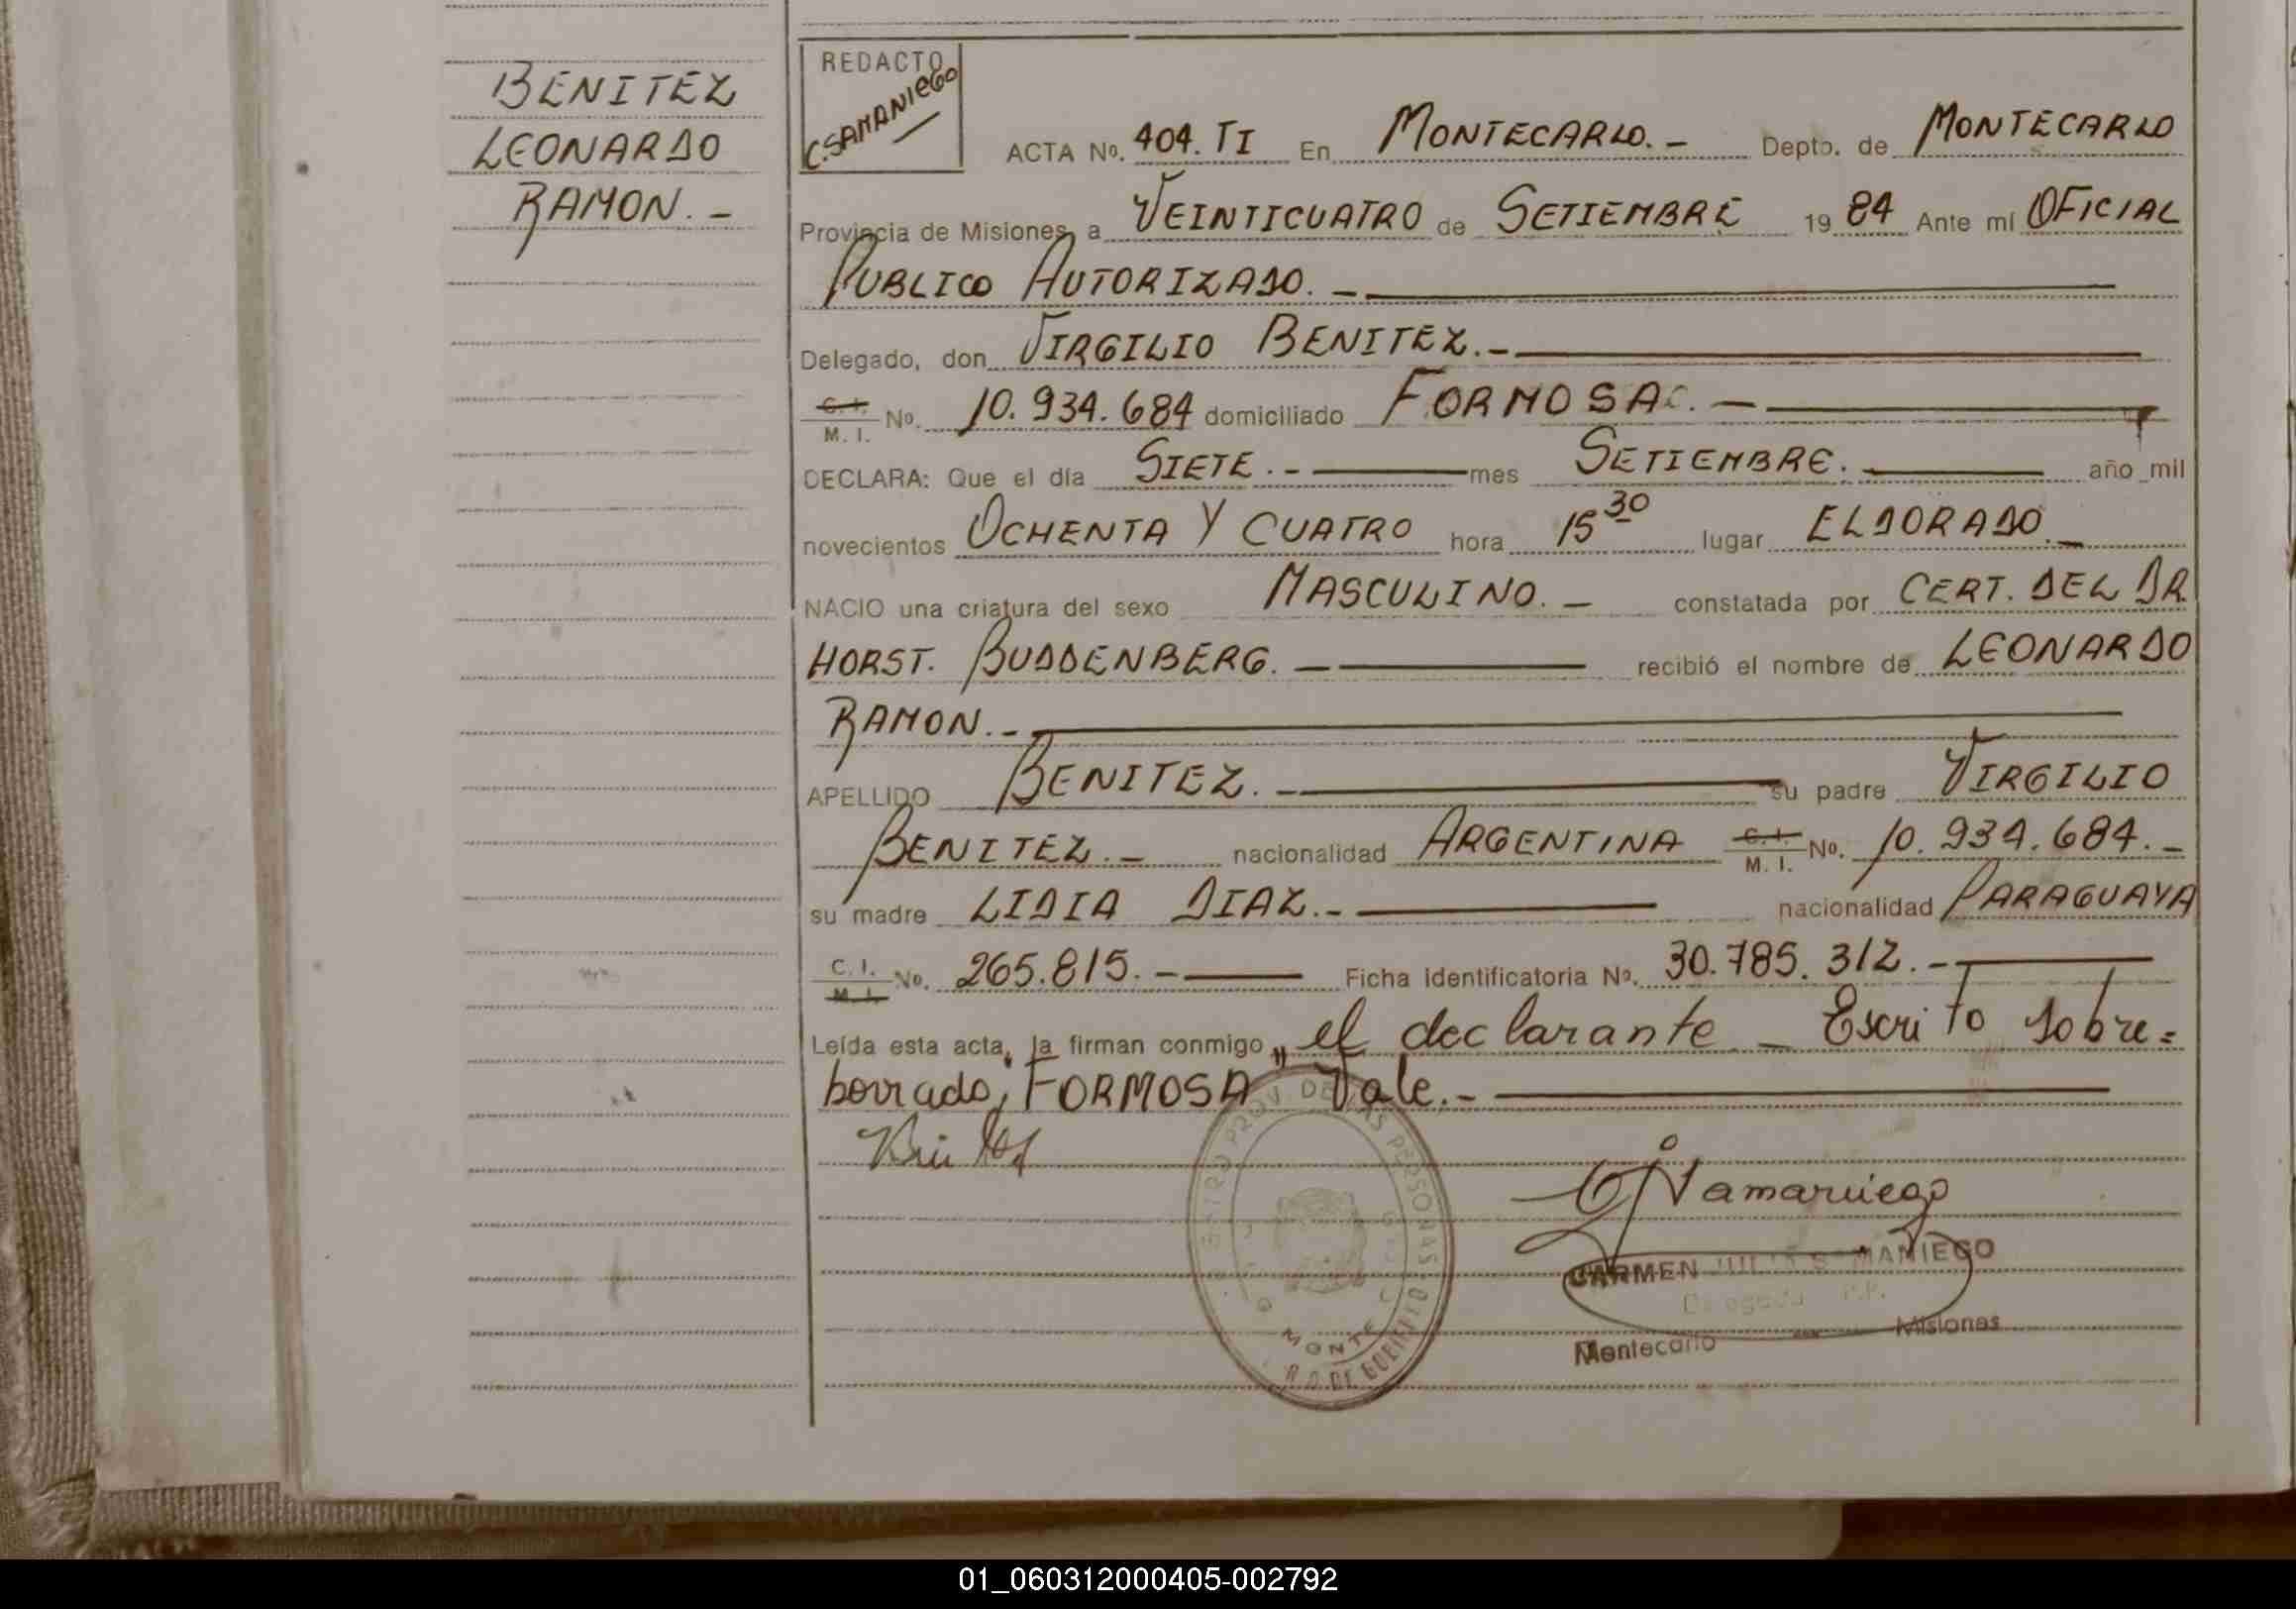 BENITEZ
LEONARDO
RAMON.-
REDACTO
C. SAMANIEGO
ACTA No. 404. TI En MONTECARLO.- Depto. de MONTECARLO
Provincia de Misiones a VEINTICUATRO de SETIEMBRE 1984 Ante mí OFICIAL
PUBLICO AUTORIZADO.-
Delegado, don VIRGILIO BENITEZ.-
C. I. M. I. No. 10.934.684 domiciliado FORMOSA.-
DECLARA: Que el día SIETE.- mes SETIEMBRE. año mil
novecientos OCHENTA Y CUATRO hora 15 30 lugar ELDORADO.-
NACIO una criatura del sexo MASCULINO.- constatada por CERT. DEL DR
HORST. BUDDENBERG.- recibió el nombre de LEONARDO
RAMON.-
APELLIDO BENITEZ.- su padre VIRGILIO
BENITEZ.- nacionalidad ARGENTINA C. I. M. I. No. 10.934.684.-
su madre LIDIA DIAZ.- nacionalidad PARAGUAYA
C. I. M. I. No. 265.815.- Ficha identificatoria No. 30.785.312.-
Leída esta acta, la firman conmigo, el declarante - Escrito sobre=
borrado, "FORMOSA" Vale.-
CSamaniego
CARMEN SAMANIEGO
Delegada
Montecarlo Misiones
01_060312000405-002792